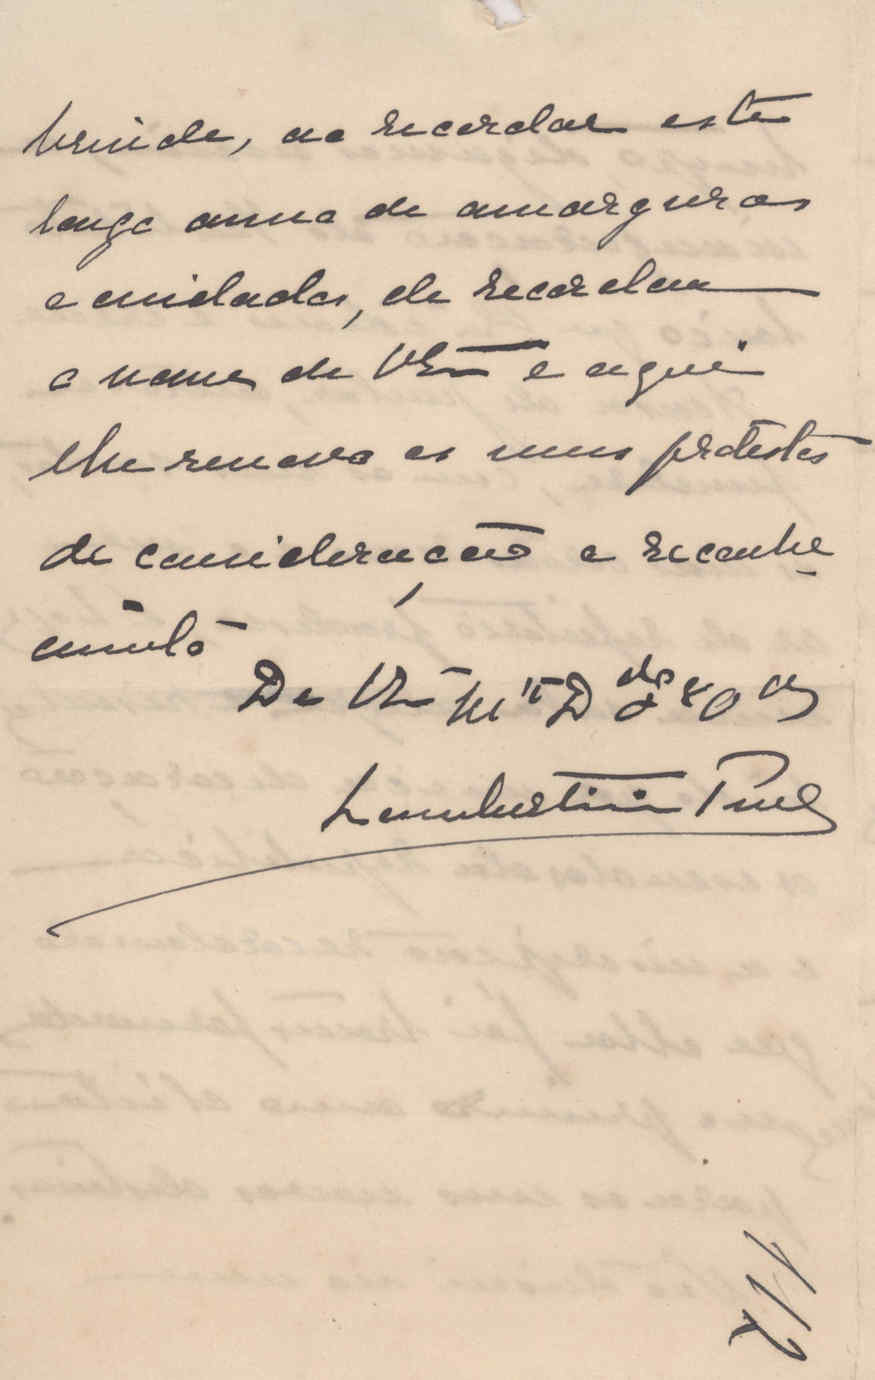 brinde, ao recordar este
longo anno de amarguras
e cuidados, de recordar
o nome de VExª e aqui
lhe renovo os meus protestos
de consideração e reconhe-
cimento
De VExª Mto
112